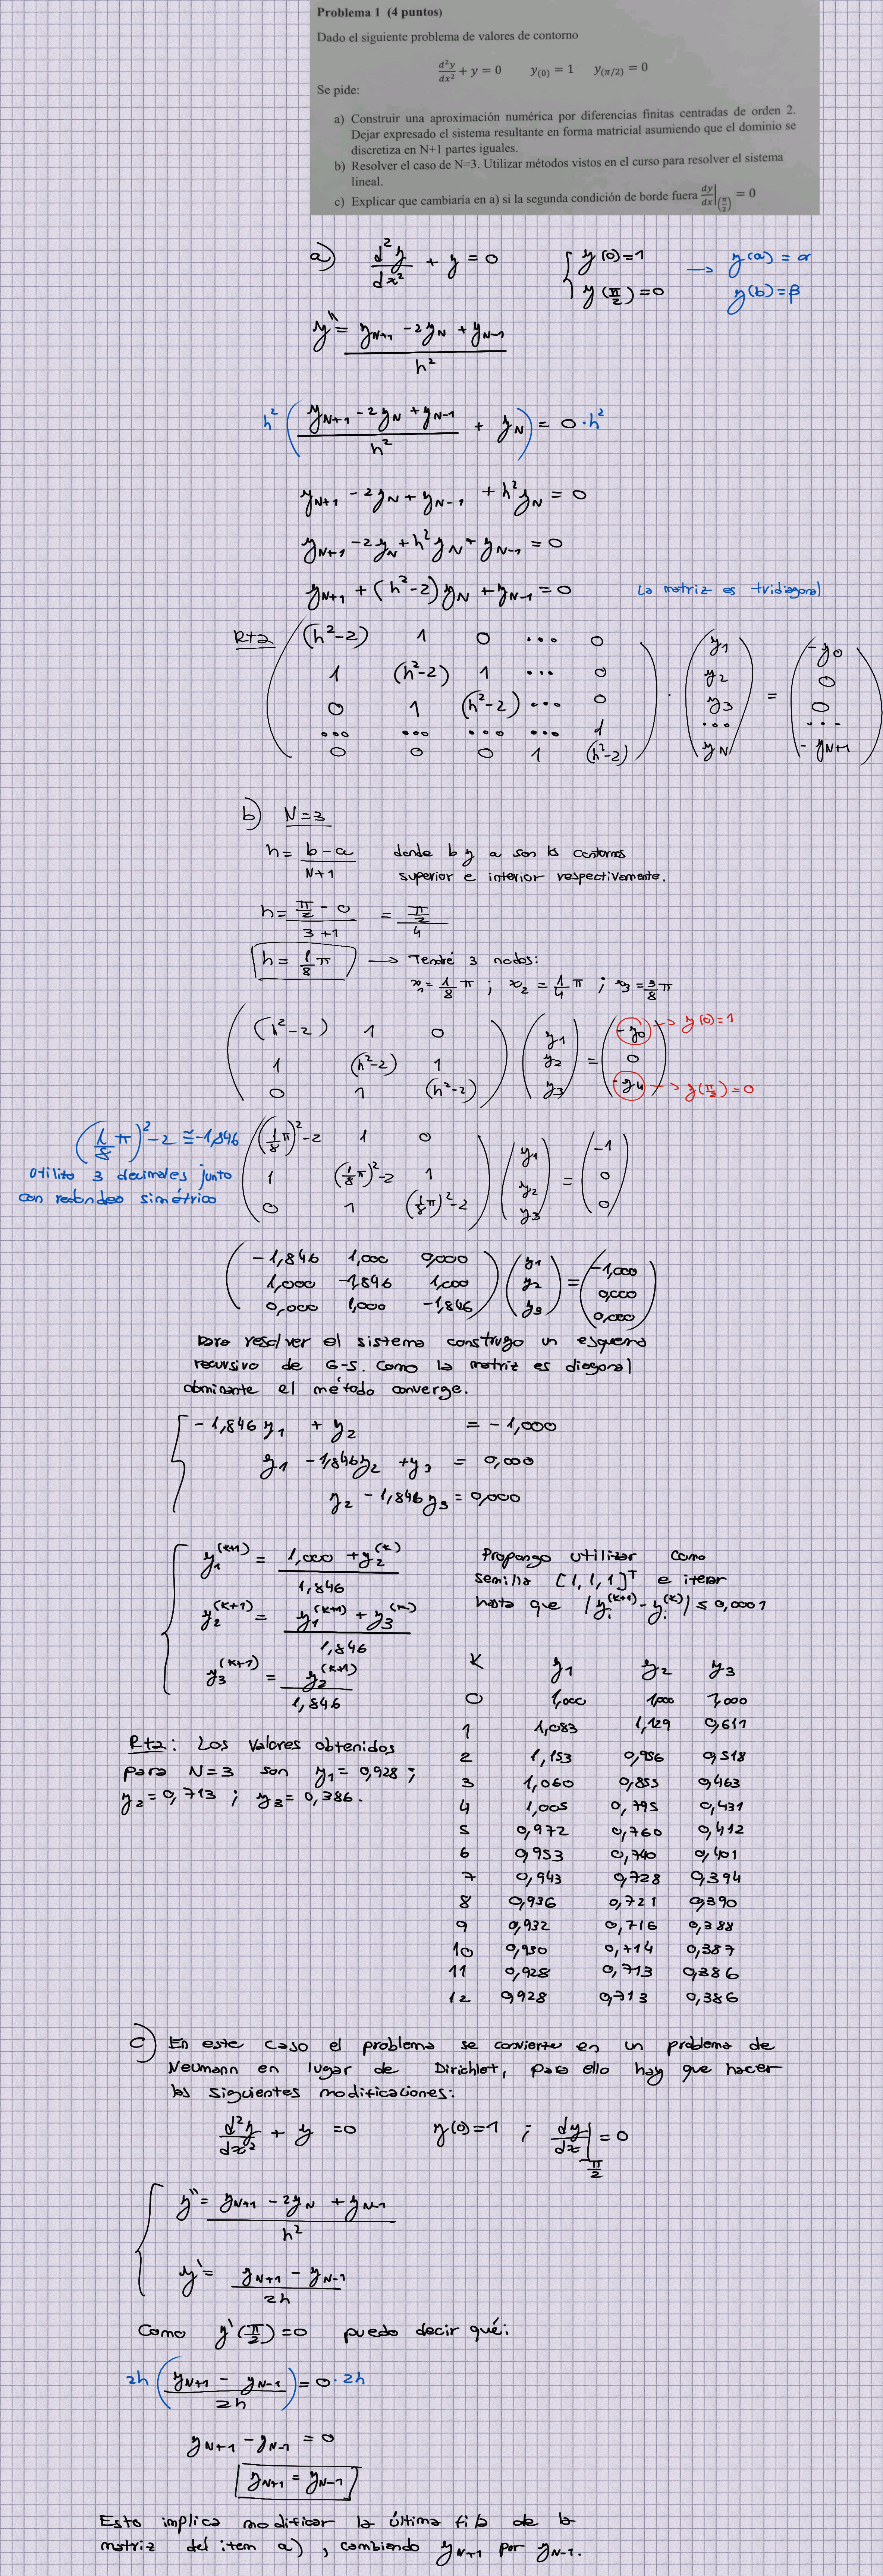 Problema 1 (4 puntos)
Dado el siguiente problema de valores de contorno
d²y/dx² + y = 0    y(0) = 1    y(π/2) = 0
Se pide:
a) Construir una aproximación numérica por diferencias finitas centradas de orden 2.
Dejar expresado el sistema resultante en forma matricial asumiendo que el dominio se
discretiza en N+1 partes iguales.
b) Resolver el caso de N=3. Utilizar métodos vistos en el curso para resolver el sistema
lineal.
c) Explicar que cambiaría en a) si la segunda condición de borde fuera dy/dx|(π/2) = 0
a) d²y/dx² + y = 0    { y(0)=1 → y(a) = α
y(π/2)=0    y(b)=β
y'' = (yN+1 - 2yN + yN-1)/h²
h² ( (yN+1 - 2yN + yN-1)/h² + yN ) = 0·h²
yN+1 - 2yN + yN-1 + h²yN = 0
yN+1 - 2yN + h²yN + yN-1 = 0
yN+1 + (h²-2)yN + yN-1 = 0    La matriz es tridiagonal
Rta (h²-2) 1 0 ... 0    y1    -y0
1 (h²-2) 1 ... 0    y2    0
0 1 (h²-2) ... 0 · y3 = 0
... ... ... ... 1    ...    ...
0 0 0 1 (h²-2)    yN    -yN+1
b) N=3
h = (b-a)/(N+1)    donde b y a son los contornos
superior e inferior respectivamente.
h = (π/2 - 0)/(3+1) = (π/2)/4
h = 1/8 π → Tendré 3 nodos:
x1 = 1/8 π ; x2 = 1/4 π ; x3 = 3/8 π
(h²-2) 1 0    y1    -y0 → y(0)=1
1 (h²-2) 1    y2 = 0
0 1 (h²-2)    y3    -y4 → y(π/2)=0
(1/8 π)²-2 ≅ -1,846    (1/8 π)²-2 1 0    y1    -1
Utilizo 3 decimales junto    1 (1/8 π)²-2 1    y2 = 0
con redondeo simétrico    0 1 (1/8 π)²-2    y3    0
-1,846 1,000 0,000    y1    -1,000
1,000 -1,846 1,000    y2 = 0,000
0,000 1,000 -1,846    y3    0,000
Para resolver el sistema construyo un esquema
recursivo de G-S. Como la matriz es diagonal
dominante el método converge.
-1,846 y1 + y2 = -1,000
y1 - 1,846 y2 + y3 = 0,000
y2 - 1,846 y3 = 0,000
y1^(k+1) = (1,000 + y2^(k))/1,846    Propongo utilizar como
semilla [1,1,1]^T e iterar
hasta que |yi^(k+1) - yi^(k)| ≤ 0,0001
y2^(k+1) = (y1^(k+1) + y3^(k))/1,846
y3^(k+1) = y2^(k+1)/1,846
K y1 y2 y3
0 1,000 1,000 1,000
1 1,083 1,129 0,611
2 1,153 0,956 0,518
3 1,060 0,855 0,463
4 1,005 0,795 0,431
5 0,972 0,760 0,412
6 0,953 0,740 0,401
7 0,943 0,728 0,394
8 0,936 0,721 0,390
9 0,932 0,716 0,388
10 0,930 0,714 0,387
11 0,928 0,713 0,386
12 0,928 0,713 0,386
Rta: Los valores obtenidos
para N=3 son y1 = 0,928 ;
y2 = 0,713 ; y3 = 0,386.
c) En este caso el problema se convierte en un problema de
Neumann en lugar de Dirichlet, para ello hay que hacer
las siguientes modificaciones:
d²y/dx² + y = 0    y(0)=1 ; dy/dx|π/2 = 0
y'' = (yN+1 - 2yN + yN-1)/h²
y' = (yN+1 - yN-1)/2h
Como y'(π/2) = 0 puedo decir qué:
2h ( (yN+1 - yN-1)/2h ) = 0·2h
yN+1 - yN-1 = 0
yN+1 = yN-1
Esto implica modificar la última fila de la
matriz del item a), cambiando yN+1 por yN-1.